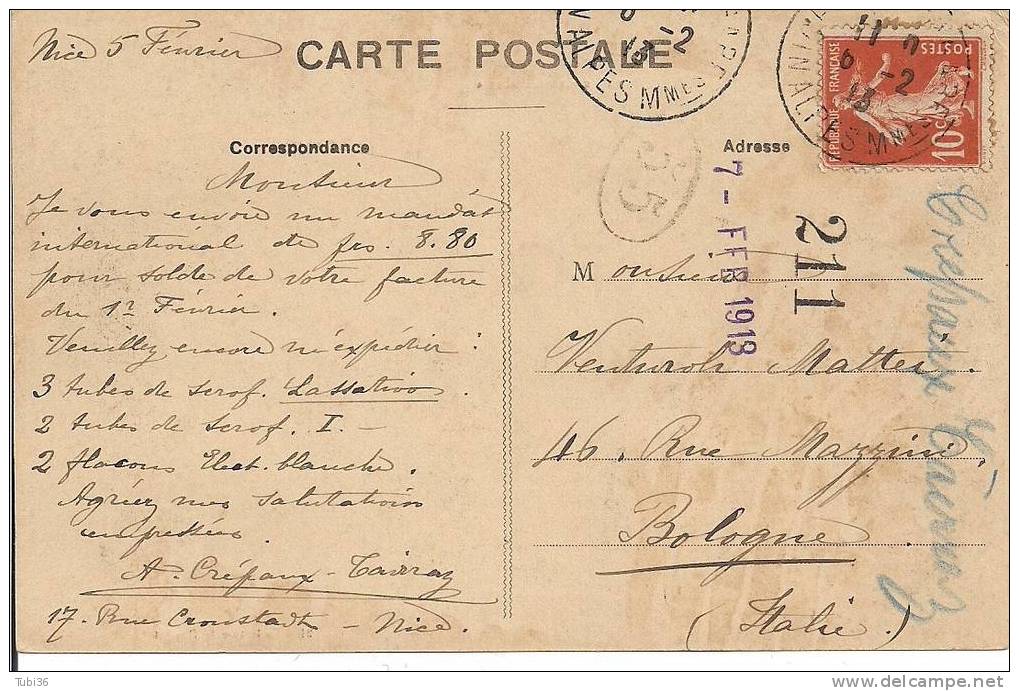 Nice 5 Février
CARTE POSTALE
Correspondance
Monsieur
Je vous envoie un mandat
international de frs. 8.80
pour solde de votre facture
du 1er Février.
Veuillez encore m'expédier :
3 tubes de scrof. Lassativo.
2 tubes de scrof. I. —
2 flacons Elect. blanche.
Agréez mes salutations
empressées.
A. Crépaux-Tairraz
17. Rue Cronstadt - Nice.
Adresse
RÉPUBLIQUE FRANÇAISE
POSTES
10c
11
6 -2
13
ALPES MMES
6 -2
13
ALPES MMES
35
7 - FEB 1913
211
Monsieur
Venturoli Mattei
46. Rue Mazzini.
Bologne
(Italie.)
Crépaux Tairraz
Tubi36
www.delcampe.net